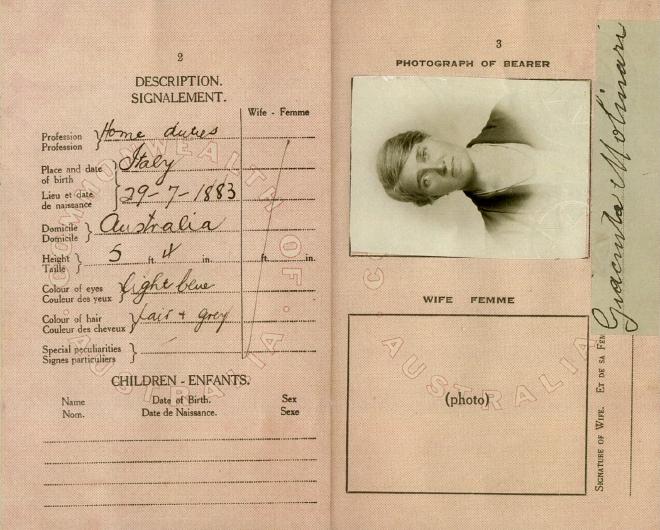 2
DESCRIPTION.
SIGNALEMENT.
Wife - Femme
Profession
Profession
Home duties
Place and date
of birth
Italy
Lieu et date
de naissance
29-7-1883
Domicile
Domicile
Australia
Height
Taille
5 ft 4 in. ft. in.
Colour of eyes
Couleur des yeux
light blue
Colour of hair
Couleur des cheveux
fair + grey
Special peculiarities
Signes particuliers
CHILDREN - ENFANTS.
Name Date of Birth. Sex
Nom. Date de Naissance. Sexe
COMMONWEALTH OF AUSTRALIA
3
PHOTOGRAPH OF BEARER
WIFE FEMME
(photo)
AUSTRALIA
Giacinta Molinari
SIGNATURE OF WIFE. ET DE SA FEM